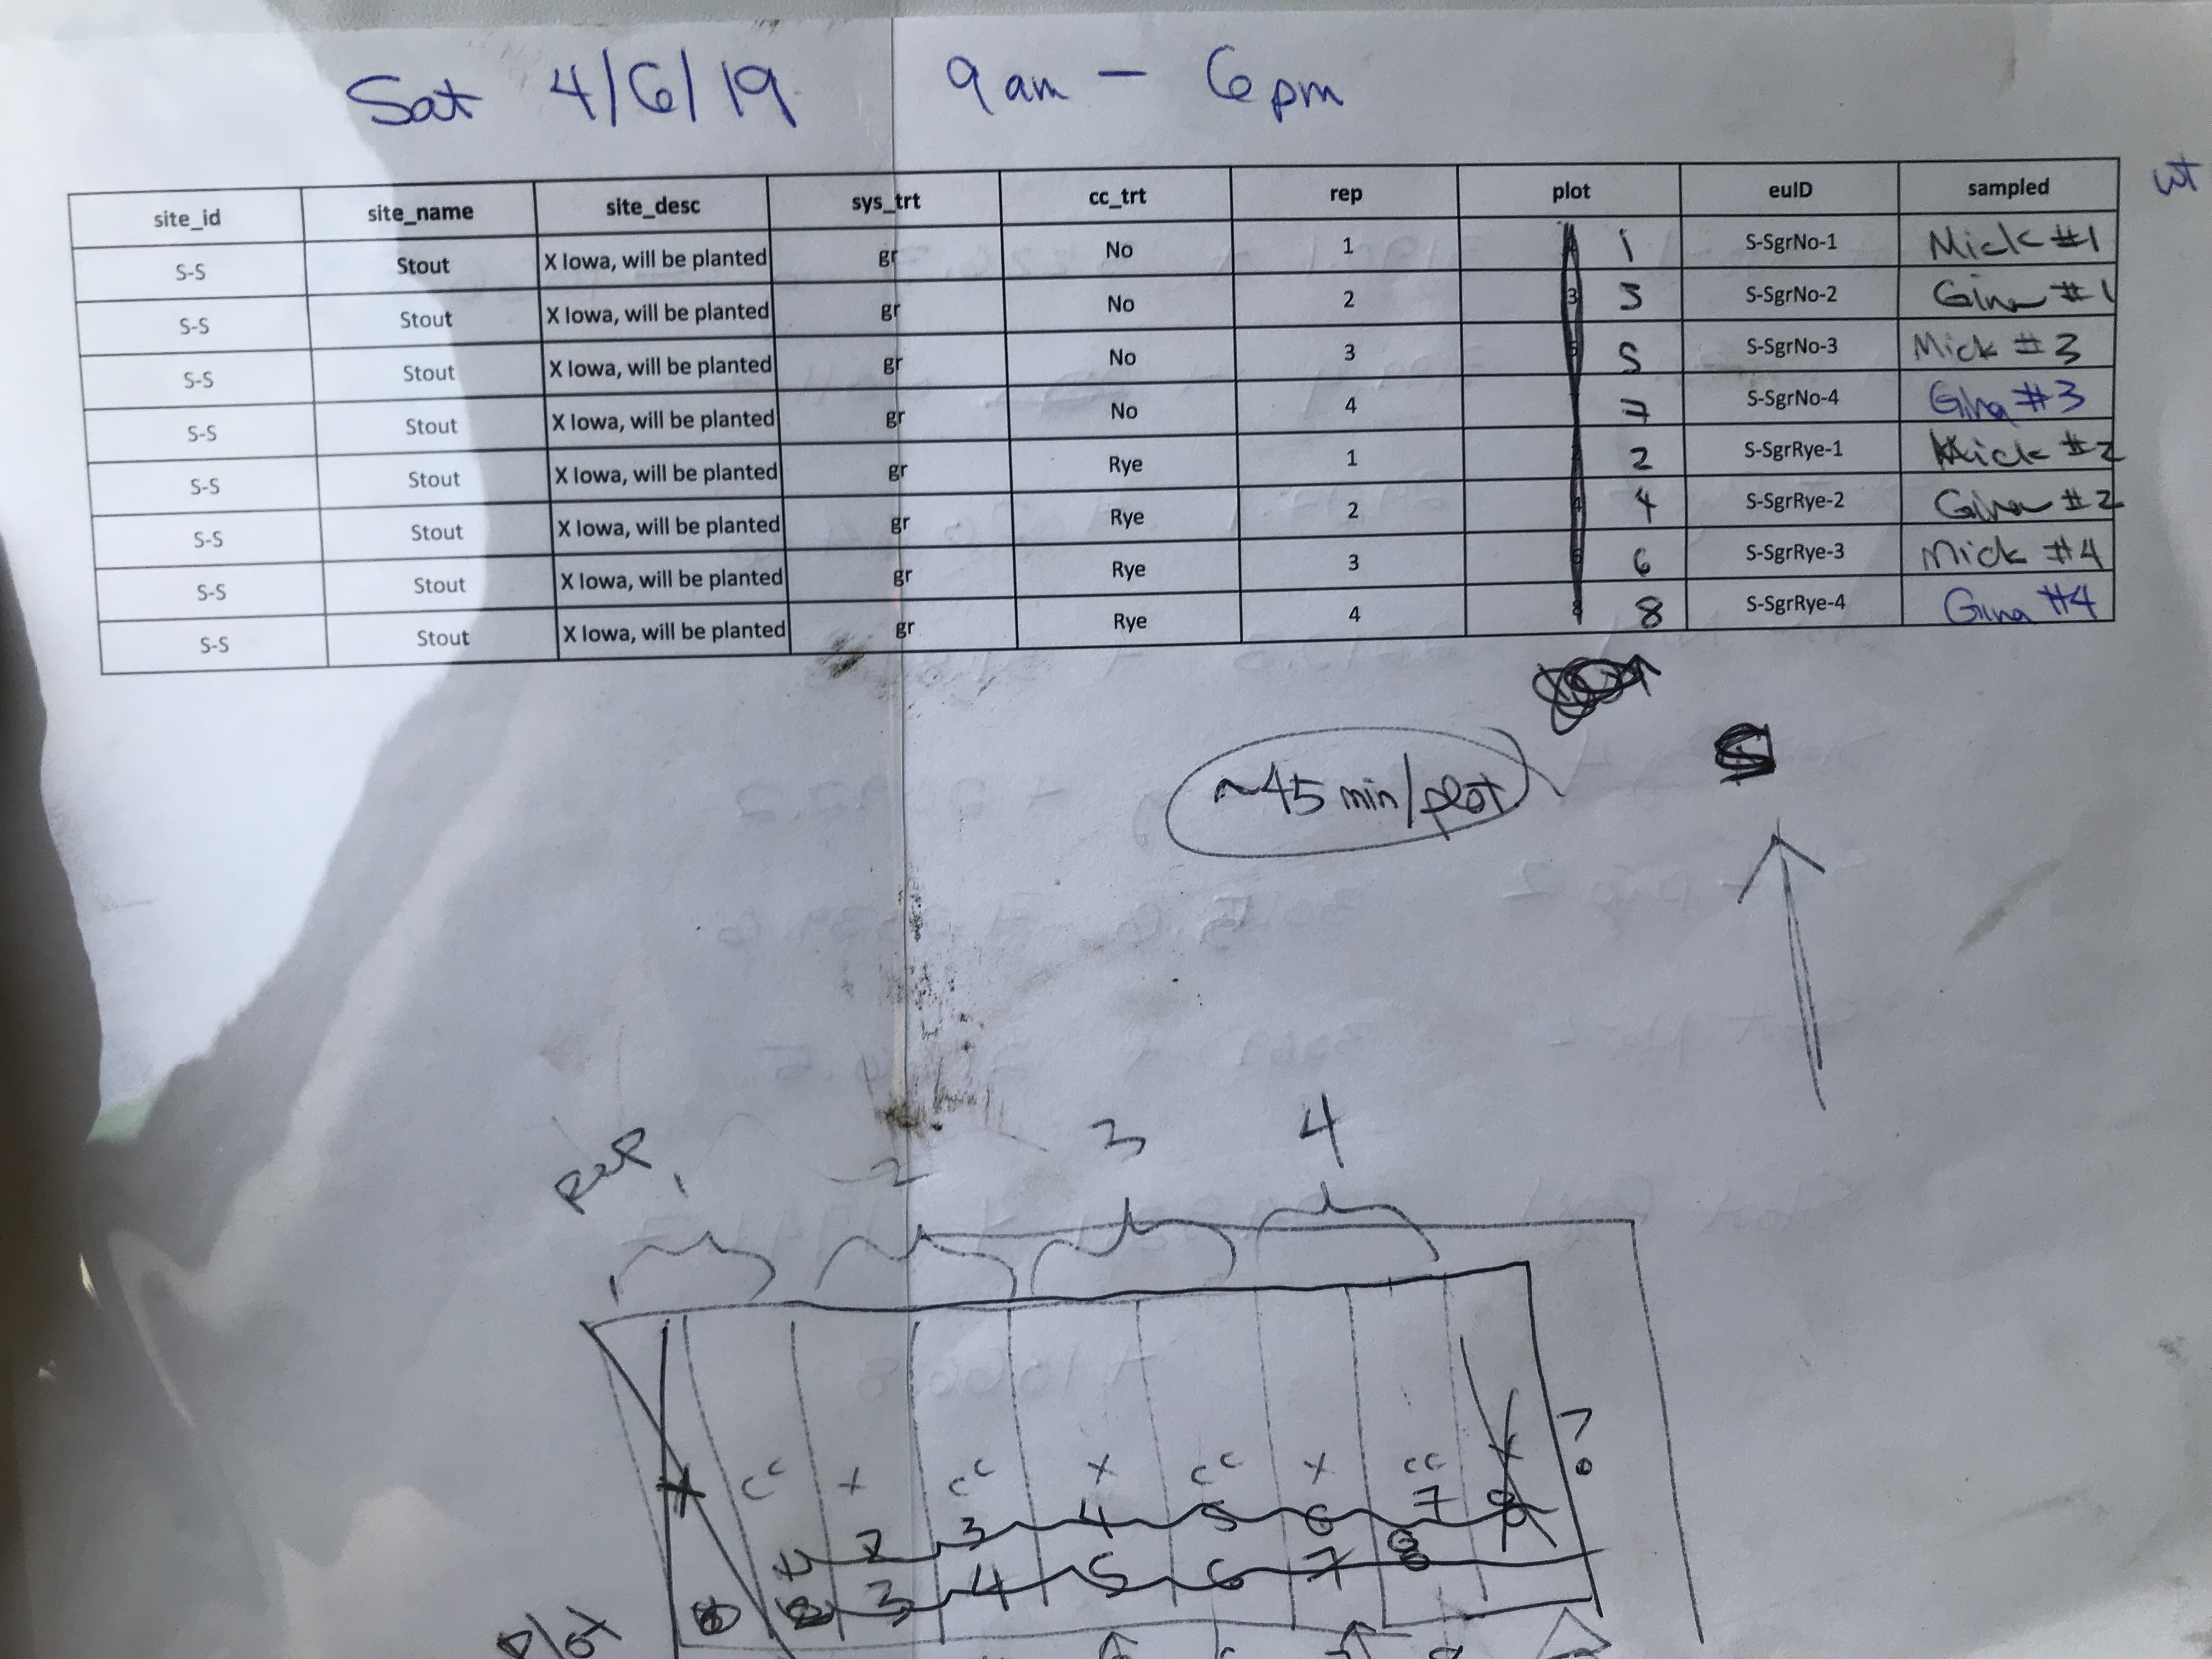 Sat 4/6/19 9am - 6pm
site_id site_name site_desc sys_trt cc_trt rep plot euID sampled wt
S-S Stout X Iowa, will be planted gr No 1 1 S-SgrNo-1 Mick #1
S-S Stout X Iowa, will be planted gr No 2 3 3 S-SgrNo-2 Gina #1
S-S Stout X Iowa, will be planted gr No 3 5 5 S-SgrNo-3 Mick #3
S-S Stout X Iowa, will be planted gr No 4 7 S-SgrNo-4 Gina #3
S-S Stout X Iowa, will be planted gr Rye 1 2 S-SgrRye-1 Mick #2
S-S Stout X Iowa, will be planted gr Rye 2 4 4 S-SgrRye-2 Gina #2
S-S Stout X Iowa, will be planted gr Rye 3 6 6 S-SgrRye-3 Mick #4
S-S Stout X Iowa, will be planted gr Rye 4 8 8 S-SgrRye-4 Gina #4
~45 min/plot
S
Rep 1 2 3 4
X cc X cc X cc X cc X ?
1 2 3 4 5 6 7 8
3 4 5 6 7 8
Plot